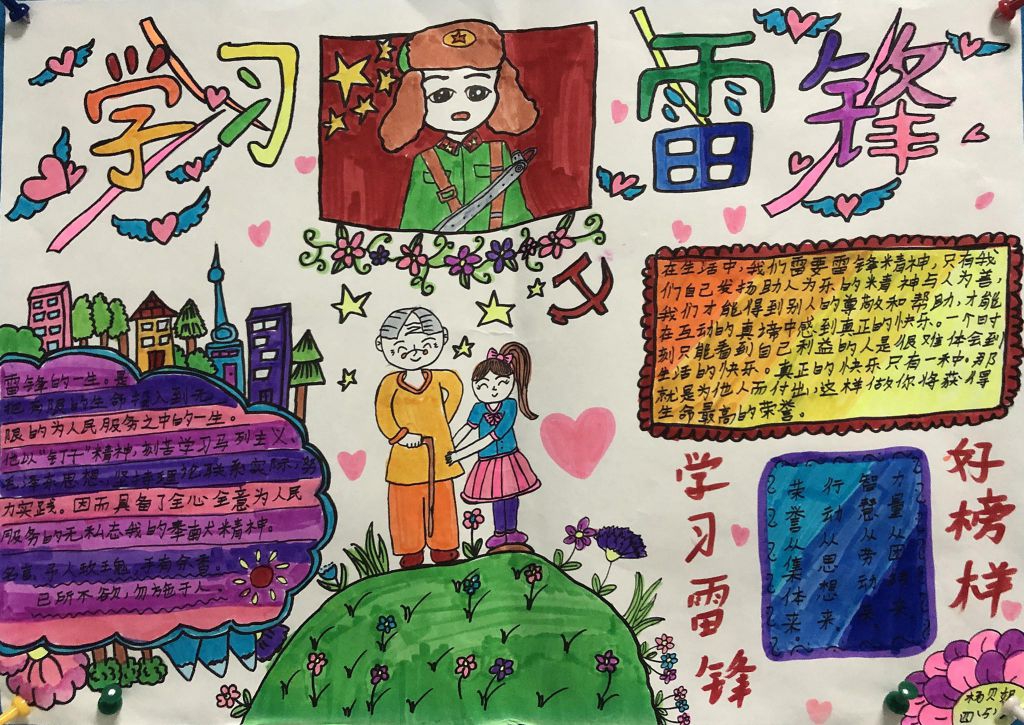 学习
雷锋
在生活中,我们需要雷锋精神,只有我
们自己发扬助人为乐的精神与人为善,
我们才能得到别人的尊敬和帮助,才能
在互动的真谛中感到真正的快乐。一个时
刻只能看到自己利益的人是很难体会到
生活的快乐。真正的快乐只有一种,那
就是为他人而付出,这样做你将获得
生命最高的荣誉。
雷锋的一生。是
把有限的生命投入到无
限的为人民服务之中的一生。
他以“钉子”精神,刻苦学习马列主义、
毛泽东思想,坚持理论联系实际,努
力实践。因而具备了全心全意为人民
服务的无私忘我的奉献精神。
名言、予人玫瑰,手有余香。
己所不欲,勿施于人
学习雷锋
好榜样
力量从团结来
智慧从劳动来
行动从思想来
荣誉从集体来。
四(5)